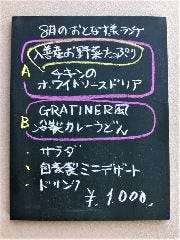 8月のおとな様ランチ
入善産お野菜たっぷり
A
チキンの
ホワイトソースドリア
B
GRATINER風
冷製カレーうどん
サラダ
自家製ミニデザート
ドリンク
¥1000